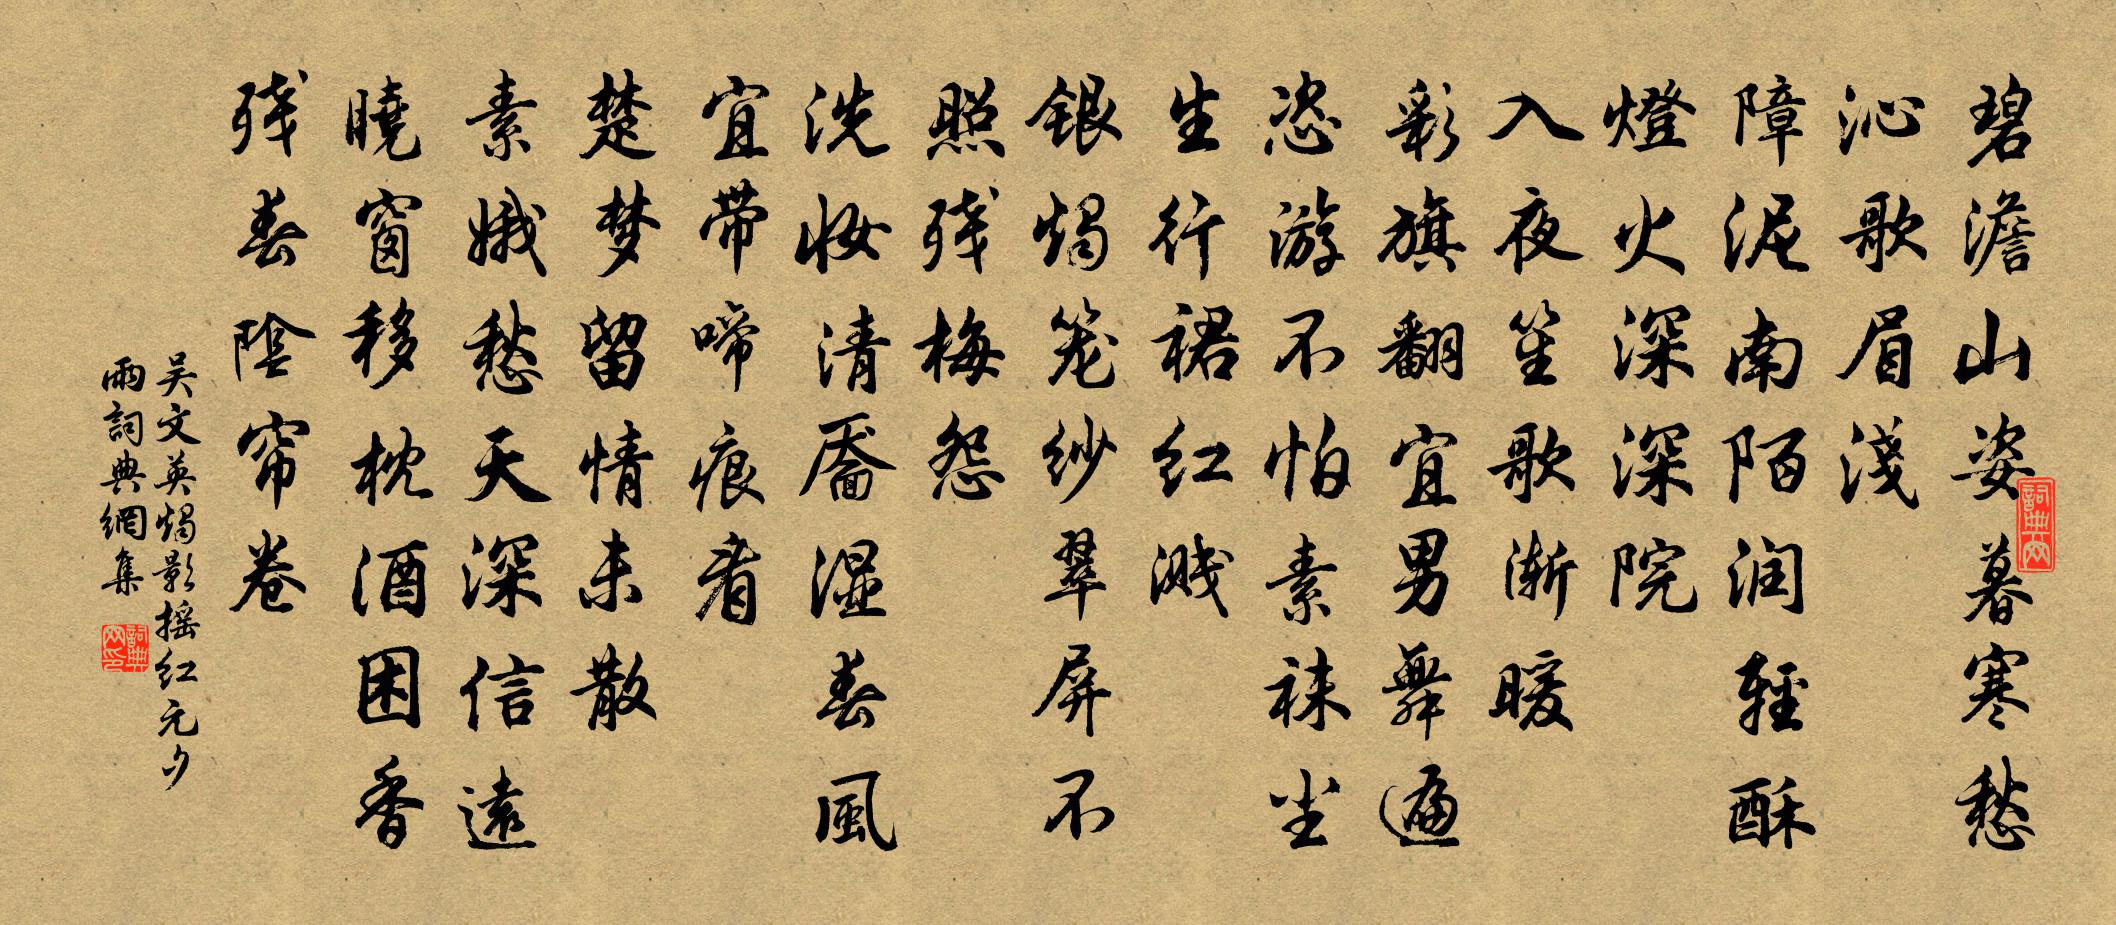 碧澹山姿暮寒愁
沁歌眉淺
障泥南陌润輕酥
燈火深深院
入夜笙歌渐暖
彩旗翻宜男舞遍
恣游不怕素袜尘
生行裙红溅
銀燭笼纱翠屏不
照残梅怨
洗妆清靥湿春風
宜带啼痕看
楚梦留情未散
素娥愁天深信遠
曉窗移枕酒困香
残春陰帘卷
吴文英燭影摇红元夕
雨詞典網集
詞典网
詞典网印